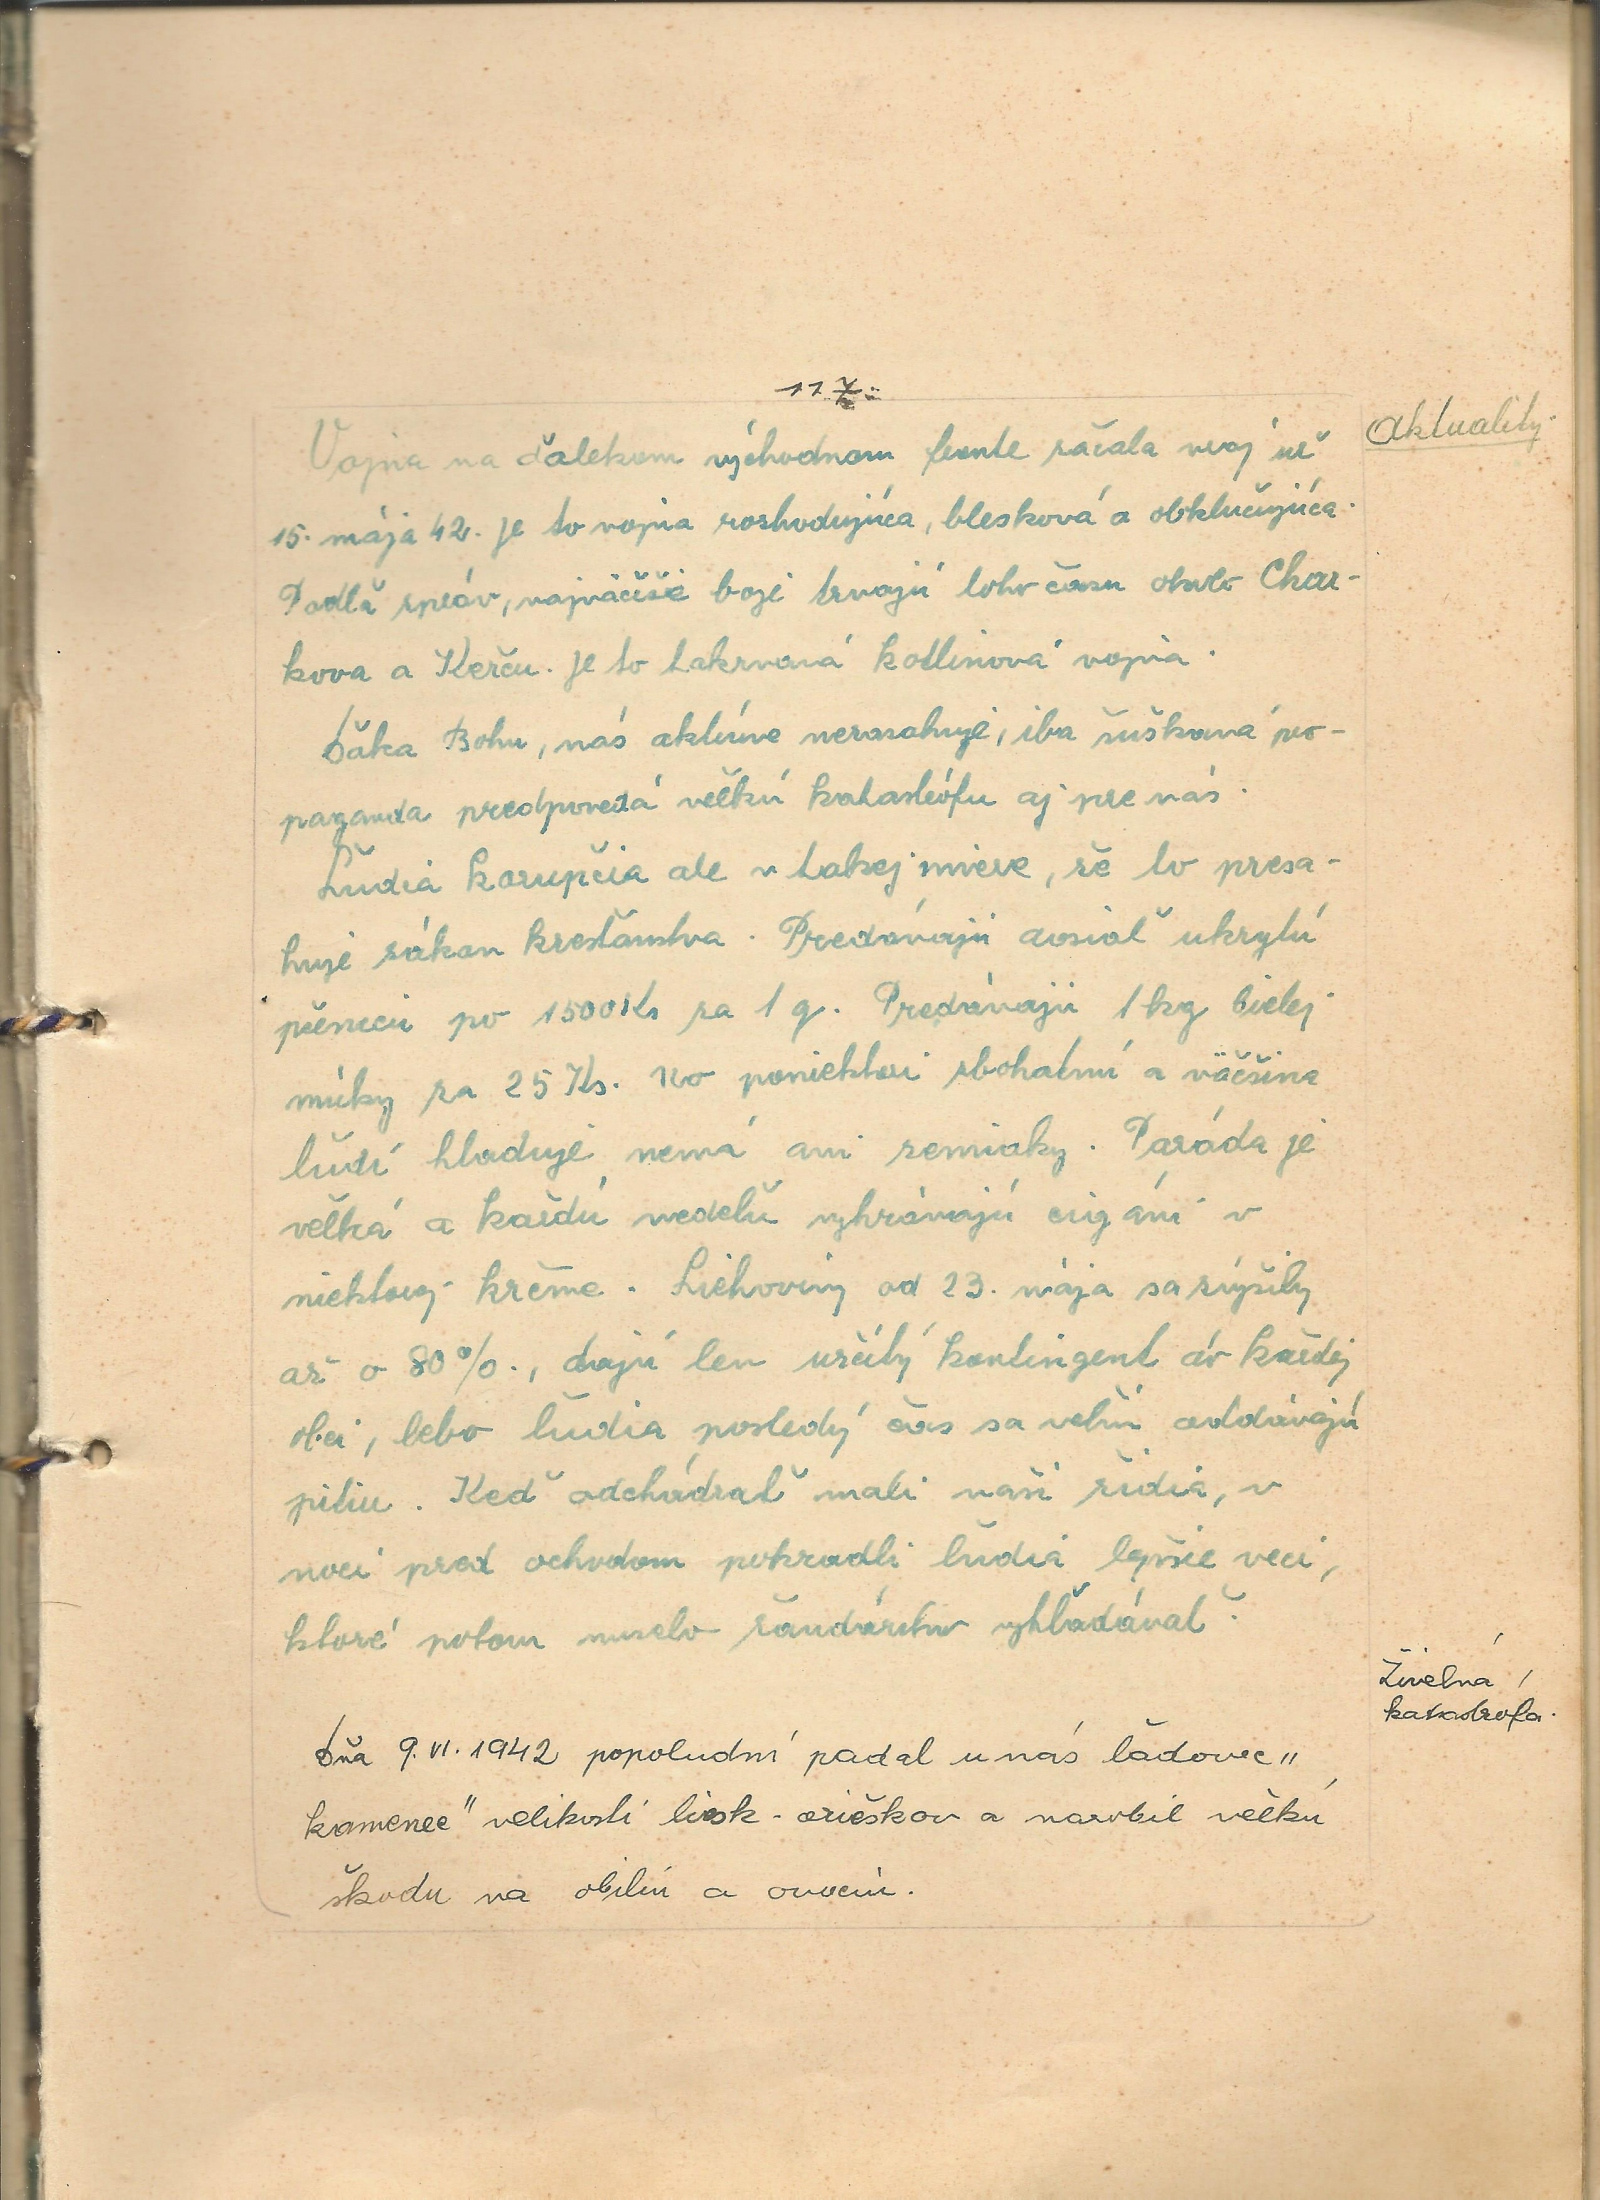 117.
aktuality.
Vojna na ďalekom východnom fronte začala svoj už
15. mája 42. Je to vojna rozhodujúca, blesková a obkľučujúca.
Podľa správ, najväčšie boje trvajú toho času okolo Char-
kova a Kerču. Je to takzvaná kotlinová vojna.
Ďaka Bohu, nás aktívne nezasahuje, iba šuškaná pro-
paganda predpovedá veľkú katastrófu aj pre nás.
Ľudia korupčia ale v takej miere, že to presa-
huje zákon kresťanstva. Predávajú dosiaľ ukrytú
pšenicu po 1500 Ks za 1 q. Predávajú 1 kg bielej
múky za 25 Ks. No poniektorí zbohatnú a väčšina
ľudí hladuje nemá ani zemiaky. Paráda je
veľká a každú nedeľu vyhrávajú cigáni v
niektorej krčme. Liehoviny od 23. mája sa zvýšily
až o 80%., dajú len určitý kontingent do každej
obci, lebo ľudia posledý čas sa veľmi oddávajú
pitiu. Keď odchádzať mali naši židia, v
noci pred ochodom pokradli ľudia lepšie veci,
ktoré potom muselo žandárstvo vyhľadávať.
Živelná
katastrofa.
Dňa 9. VI. 1942 popoludní padal u nás ľadovec "
kamenec" velikosti liesk-orieškov a narobil veľkú
škodu na obilí a ovocí.